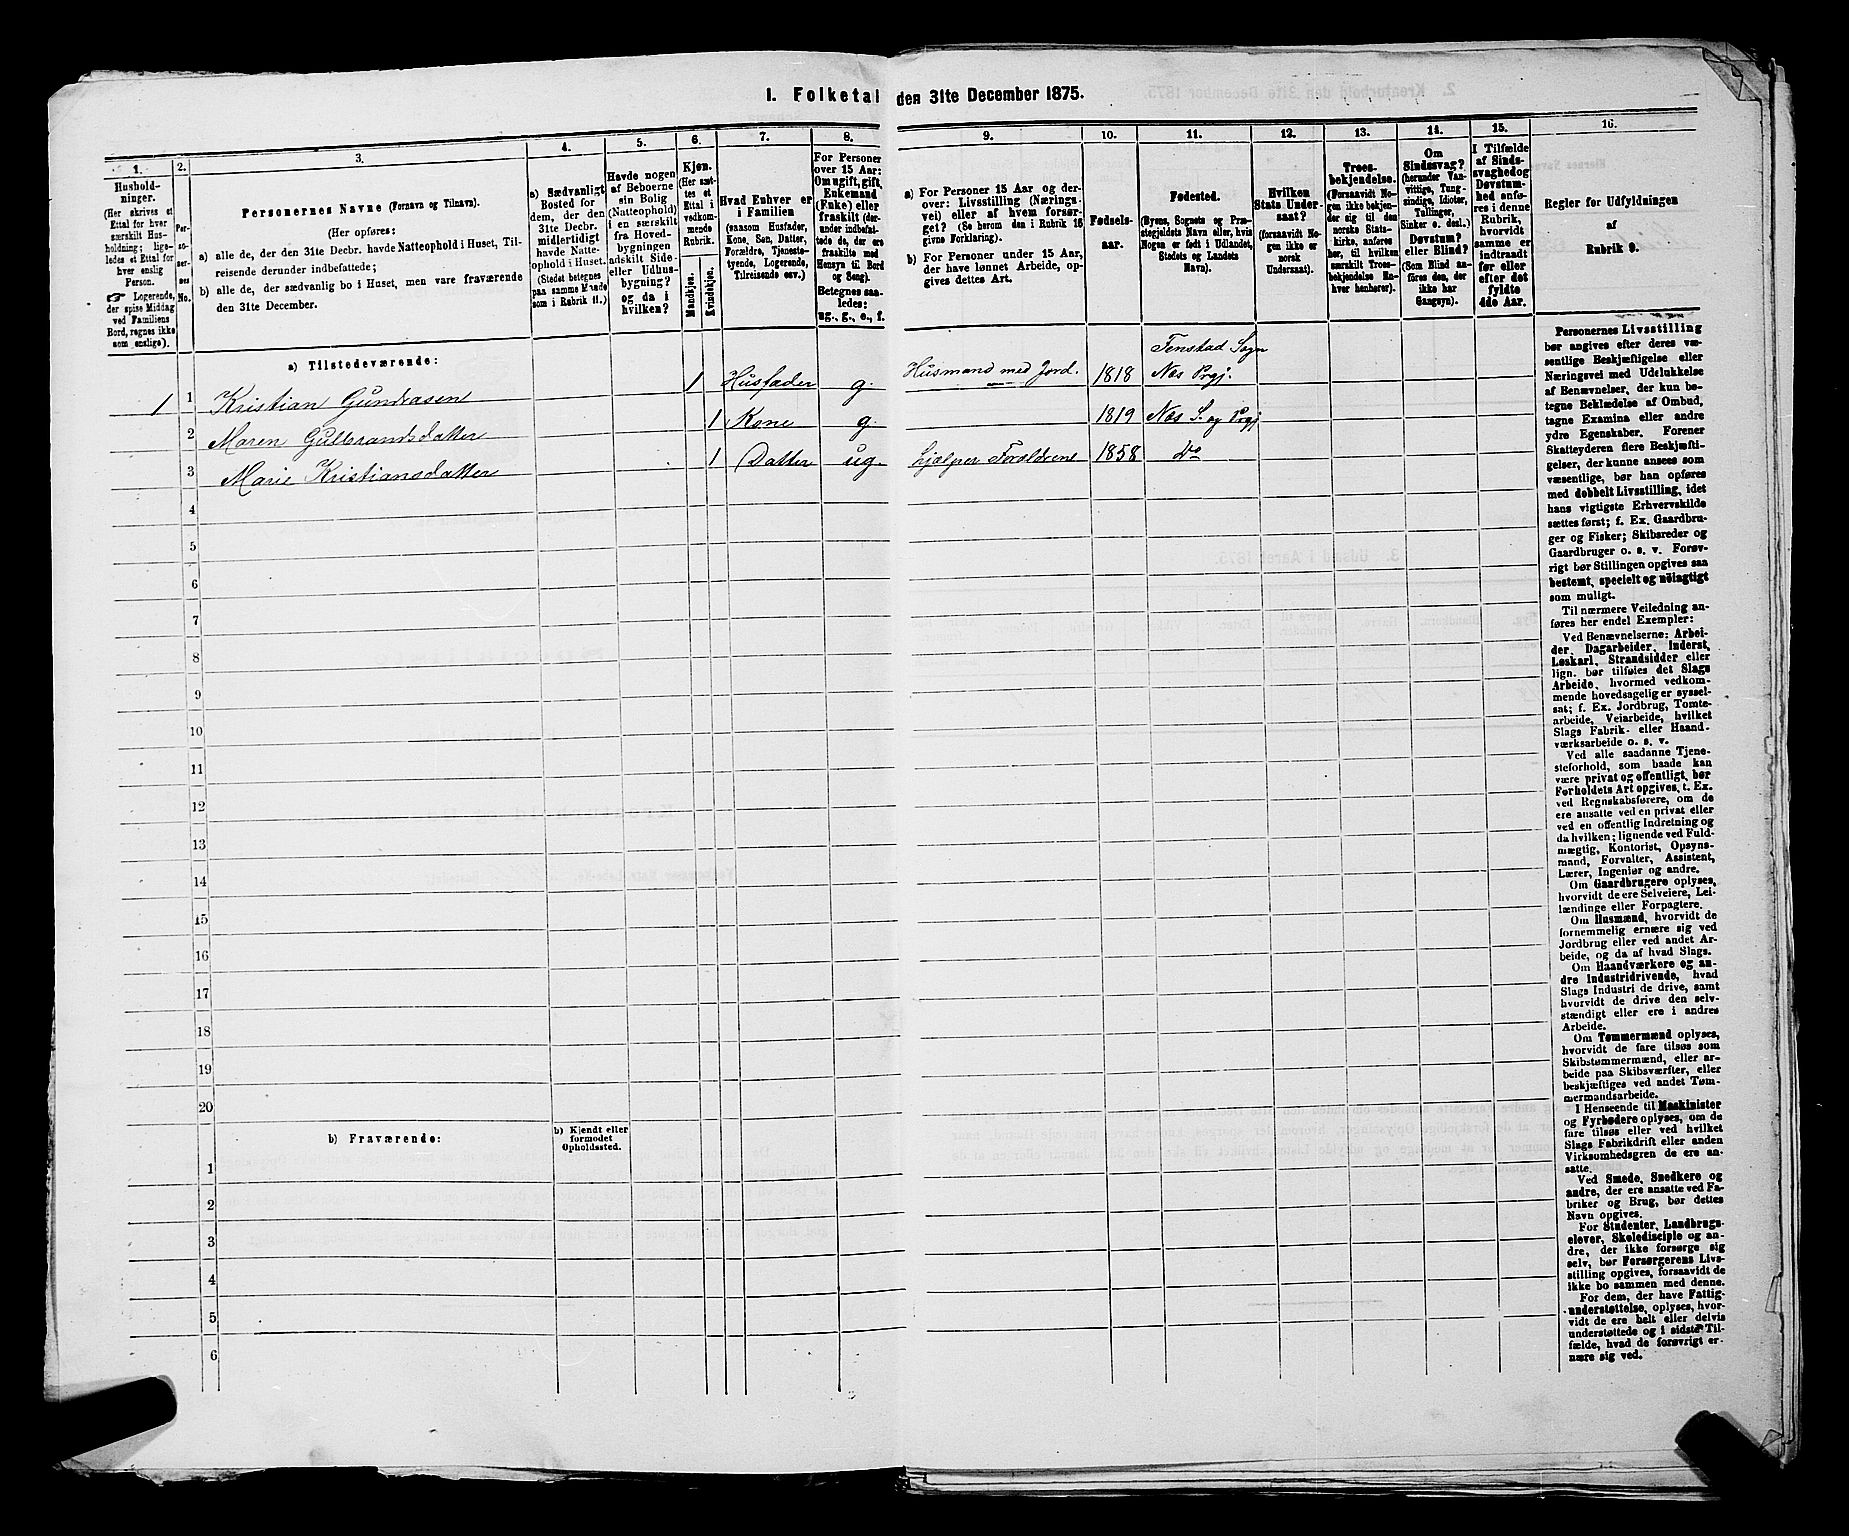 I. Folketal den 31te December 1875.
1.
Hushold-
ninger.
(Her skrives et
Ettal for hver
særskilt Hus-
holdning; lige-
ledes et Ettal for
hver enslig
Person.
☞ Logerende,
der spise Middag
ved Familiens
Bord, regnes ikke
som enslige).
2.
Per-
so-
ner-
nes
No.
3.
Personernes Navne (Fornavn og Tilnavn).
(Her opføres:
a) alle de, der den 31te Decbr. havde Natteophold i Huset, Til-
reisende derunder indbefattede;
b) alle de, der sædvanlig bo i Huset, men vare fraværende
den 31te December.
4.
a) Sædvanligt
Bosted for
dem, der den
31te Decbr.
midlertidigt
havde Natte-
ophold i Huset.
(Stedet betegnes
paa samme Maade
som i Rubrik 11.)
5.
Havde nogen
af Beboerne
sin Bolig
(Natteophold)
i en særskilt
fra Hoved-
bygningen
adskilt Side-
eller Udhus-
bygning?
og da i
hvilken?
6.
Kjøn.
(Her sæt-
tes et
Ettal i
vedkom-
mende
Rubrik.
Mandkjøn.
Kvindekjøn.
7.
Hvad Enhver er
i Familien
(saasom Husfader,
Kone, Søn, Datter,
Forældre, Tjeneste-
tyende, Logerende,
Tilreisende osv.)
8.
For Personer
over 15 Aar:
Om ugift, gift,
Enkemand
(Enke) eller
fraskilt (der-
under indbefat-
tede de, der ere
fraskilte med
Hensyn til Bord
og Seng).
Betegnes saa-
ledes:
ug., g., e., f.
9.
a) For Personer 15 Aar og der-
over: Livsstilling (Nærings-
vei) eller af hvem forsør-
get? (Se herom den i Rubrik 16
givne Forklaring).
b) For Personer under 15 Aar,
der have lønnet Arbeide, op-
gives dettes Art.
10.
Fødsels-
aar.
11.
Fødested.
(Byens, Sognets og Præ-
stegjeldets Navn eller, hvis
Nogen er født i Udlandet,
Stedets og Landets
Navn).
12.
Hvilken
Stats Under-
saat?
(forsaavidt No-
gen ikke er
norsk
Undersaat).
13.
Troes-
bekjendelse.
(Forsaavidt No-
gen ikke bekjen-
der sig til den
norske Stats-
kirke, anføres
her, til hvilken
særskilt Troes-
bekjendelse En-
hver henhører).
14.
Om
Sindssvag?
(herunder Van-
vittige, Tung-
sindige, Idioter,
Tullinger,
Sinker o. desl.).
Døvstum?
eller Blind?
(Som Blind an-
føres den, der
ikke har
Gangsyn).
15.
I Tilfælde
af Sinds-
svaghed og
Døvstum-
hed anfø-
res i denne
Rubrik,
hvorvidt
samme er
indtraadt
før eller
efter det
fyldte
4de Aar.
16.
Regler for Udfyldningen
af
Rubrik 9.
a) Tilstedeværende:
Tenstad Sogn
1 1 Kristian Gundrasen 1 Husfader g. Husmand med Jord. 1818 Næs Prgj.
2 Maren Gulbrandsdatter 1 Kone g. 1819 Næs S. og Prgj
3 Marie Kristiansdatter 1 Datter ug. hjælper Forældrene 1858 do
4
5
6
7
8
9
10
11
12
13
14
15
16
17
18
19
20
b) Fraværende:
b) Kjendt eller
formodet
Opholdssted.
1
2
3
4
5
6
Personernes Livsstilling
bør angives efter deres væ-
sentlige Beskjæftigelse eller
Næringsvei med Udelukkelse
af Benævnelser, der kun be-
tegne Beklædelse af Ombud,
tagne Examina eller andre
ydre Egenskaber. Forener
Skatteyderen flere Beskjæfti-
gelser, der kunne ansees som
væsentlige, bør han opføres
med dobbelt Livsstilling, idet
hans vigtigste Erhvervskilde
sættes først; f. Ex. Gaardbru-
ger og Fisker; Skibsreder og
Gaardbruger o. s. v. Forøv-
rigt bør Stillingen opgives saa
bestemt, specielt og nøiagtigt
som muligt.
Til nærmere Veiledning an-
føres her endel Exempler:
Ved Benævnelserne: Arbei-
der, Dagarbeider, Inderst,
Løskarl, Strandsidder eller
lign. bør tilføies det Slags
Arbeide, hvormed vedkom-
mende hovedsagelig er syssel-
sat; f. Ex. Jordbrug, Tomte-
arbeide, Veiarbeide, hvilket
Slags Fabrik- eller Haand-
værksarbeide o. s. v.
Ved alle saadanne Tjene-
steforhold, som baade kan
være privat og offentligt, bør
Forholdets Art opgives, t. Ex.
ved Regnskabsførere, om de
ere ansatte ved en privat eller
ved en offentlig Indretning og
da hvilken; lignende ved Fuld-
mægtig, Kontorist, Opsyns-
mand, Forvalter, Assistent,
Lærer, Ingeniør og andre.
Om Gaardbrugere oplyses,
hvorvidt de ere Selveiere, Lei-
lændinge eller Forpagtere.
Om Husmænd, hvorvidt de
fornemmelig ernære sig ved
Jordbrug eller ved andet Ar-
beide, og da af hvad Slags.
Om Haandværkere og an-
dre Industridrivende, hvad
Slags Industri de drive, samt
hvorvidt de drive den selv-
stændigt eller ere i andres
Arbeide.
Om Tømmermænd oplyses,
hvorvidt de fare tilsøs som
Skibstømmermænd, eller ar-
beide paa Skibsværfter, eller
beskjæftiges ved andet Tøm-
mermandsarbeide.
I Henseende til Maskinister
og Fyrbødere oplyses, om de
fare tilsøs eller ved hvilket
Slags Fabrikdrift eller anden
Virksomhedsgren de ere an-
satte.
Ved Smede, Snedkere og
andre, der ere ansatte ved Fa-
briker og Brug, bør dettes
Navn opgives.
For Studenter, Landbrugs-
elever, Skoledisciple og an-
dre, der ikke forsørge sig
selv, bør Forsørgerens Livs-
stilling opgives, forsaavidt de
ikke bo sammen med denne.
For dem, der have Fattig-
understøttelse, oplyses, hvor-
vidt de ere helt eller delvis
understøttede og i sidste Til-
fælde, hvad de forøvrigt er-
nære sig ved.